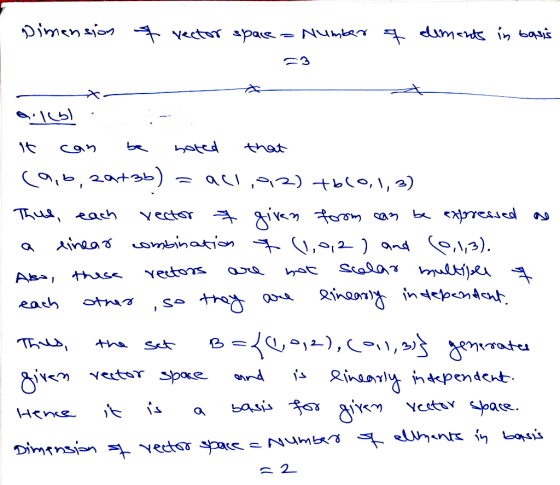 Dimension of vector space = Number of elements in basis
= 3
Q.1(b)
It can be noted that
(a, b, 2a+3b) = a(1, 0, 2) + b(0, 1, 3)
Thus, each vector of given form can be expressed as
a linear combination of (1, 0, 2) and (0, 1, 3).
Also, these vectors are not scalar multiples of
each other, so they are linearly independent.
Thus, the set B = {(1, 0, 2), (0, 1, 3)} generates
given vector space and is linearly independent.
Hence it is a basis for given vector space.
Dimension of vector space = Number of elements in basis
= 2